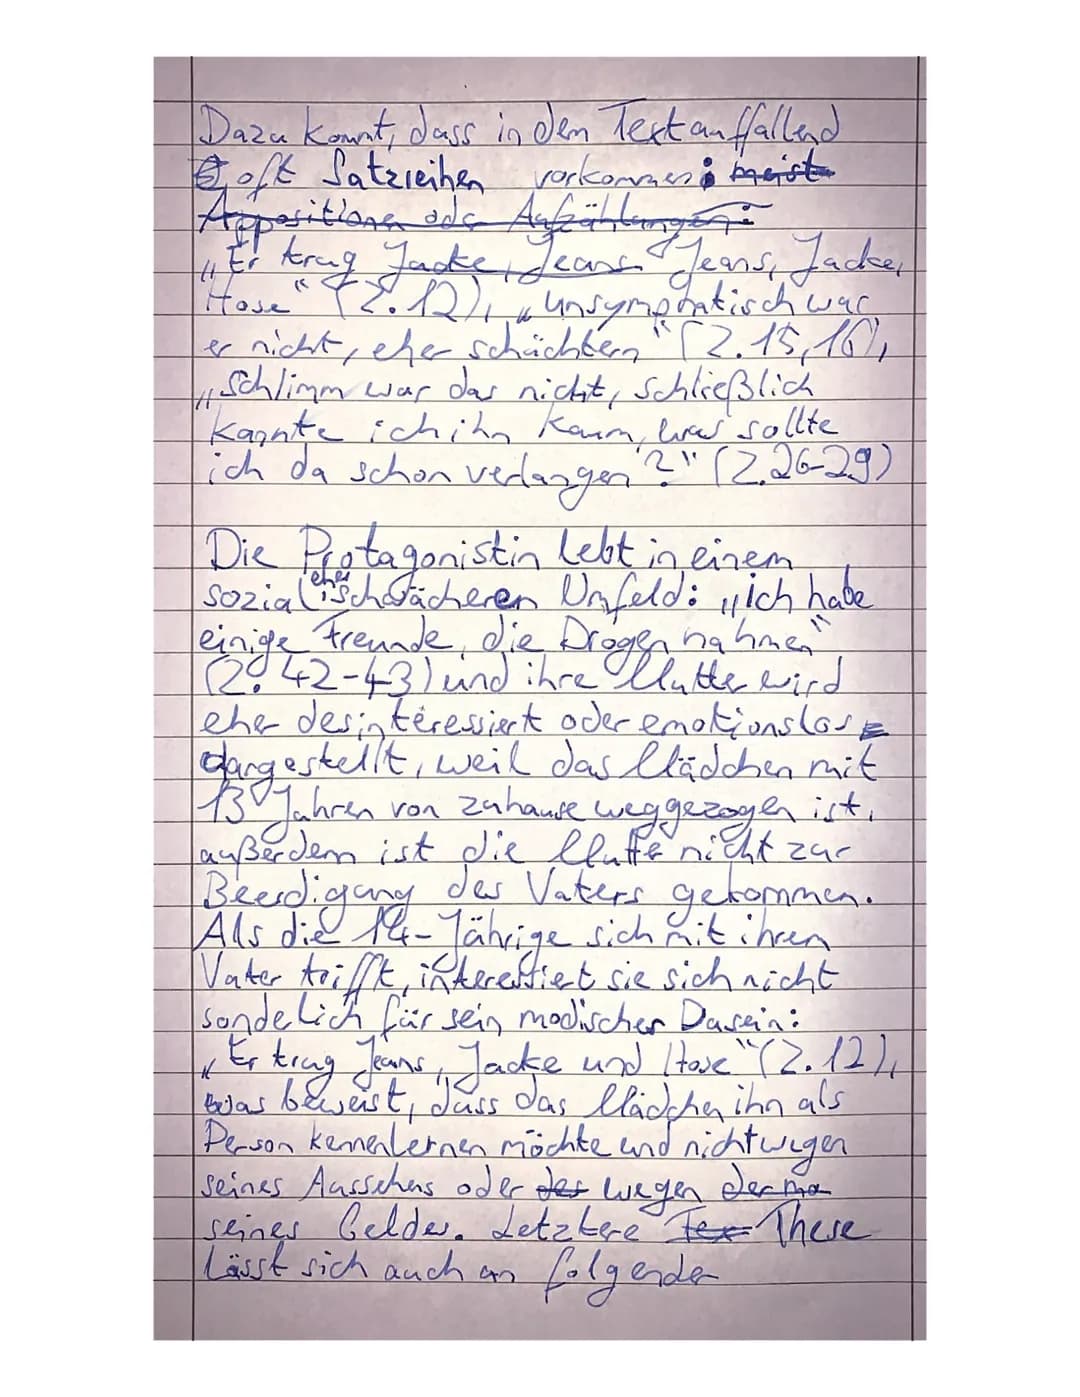 Dazu kommt, dass in dem Text auffallend
oft Satzreihen vorkommen: meist
Appositionen oder Aufzählungen:
„Er trug Jacke, Jeans Jeans, Jacke,
Hose“ (Z.12), „unsymphatisch war
er nicht, eher schüchtern“ (Z.15,16),
„Schlimm war das nicht, schließlich
kannte ich ihn kaum, was sollte
ich da schon verlangen?“ (Z.26-29)
Die Protagonistin lebt in einem
sozial eher schwächeren Umfeld: „ich habe
einige Freunde, die Drogen nahmen“
(Z. 42-43) und ihre Mutter wird
eher desinteressiert oder emotionslos
dargestellt, weil das Mädchen mit
13 Jahren von zuhause weggezogen ist,
außerdem ist die Mutter nicht zur
Beerdigung des Vaters gekommen.
Als die 14-Jährige sich mit ihrem
Vater trifft, interessiert sie sich nicht
sonderlich für sein modisches Dasein:
„Er trug Jeans, Jacke und Hose“ (Z.12),
was beweist, dass das Mädchen ihn als
Person kennenlernen möchte und nicht wegen
seines Aussehens oder des wegen der ma
seines Geldes. Letztere Tex These
lässt sich auch an folgender